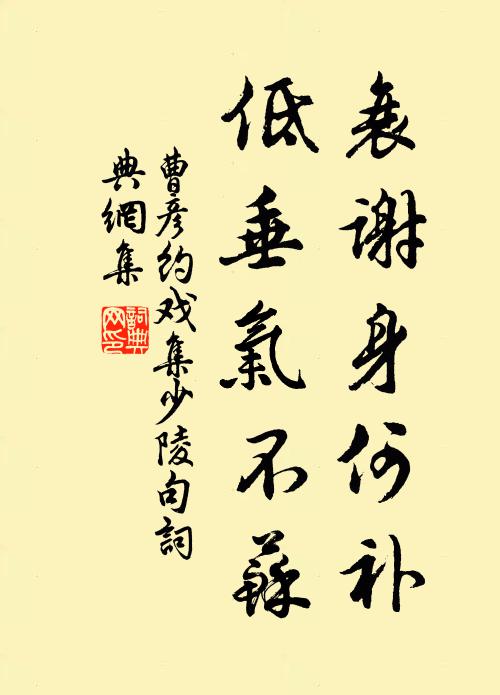 衰谢身何补
低垂氣不蘇
曹彦约戏集少陵句詞
典網集
詞典
网印